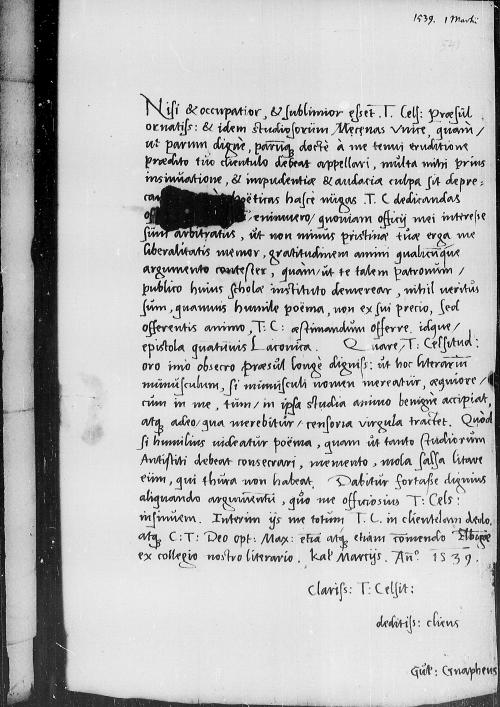 1539. 1 Martii
Nisi & occupatior, & sublimior esset .T. Cels: Præsul
ornatiss: & idem studiosorum Mecenas vnice, quam/
ut parum dignè, parumq; doctè à me tenui eruditione
prædito tuo clientulo debeat appellari, multa mihi prius
insinuatione, & impudentiæ & audaciæ culpa sit depre-
poëticas hasce nugas T. C dedicandas
enimuero/ quoniam officij mei interesse
sum arbitratus, ut non minus pristinæ tuæ erga me
liberalitatis memor, gratitudinem animi qualicunque
argumento contester, quàm/ ut te talem patronum/
publico huius scholæ instituto demerear, nihil veritus
sum, quamuis humile poëma, non ex sui precio, sed
offerentis animo, T: C: æstimandum offerre. idque/
epistola quatumuis Laconica. Quare/ T: Celsitud:
oro imo obsecro præsul longè digniss: ut hoc literarium
munusculum, si munusculi nomen mereatur, æquiore/
cum in me, tum/ in ipsa studia animo benigne accipiat,
atq; adeo/ qua merebitur/ censoria virgula tractet. Quòd
si humilius uideatur poëma, quam ut tanto studiorum
Antistiti debeat consecrari, memento, mola salsa litare
eum, qui thura non habeat. Dabitur fortasse dignius
aliquando argumentum, quo me officiosius T: Cels:
insinuem. Interim ijs me totum T. C. in clientelam dedo,
atq; C: T: Deo opt: Max: etiam atq; etiam commendo Elbingæ
ex collegio nostro literario. Kal Martijs. Anº. 1539.
Clariss: T: Celsit:
deditiss: cliens
Guil: Gnapheus